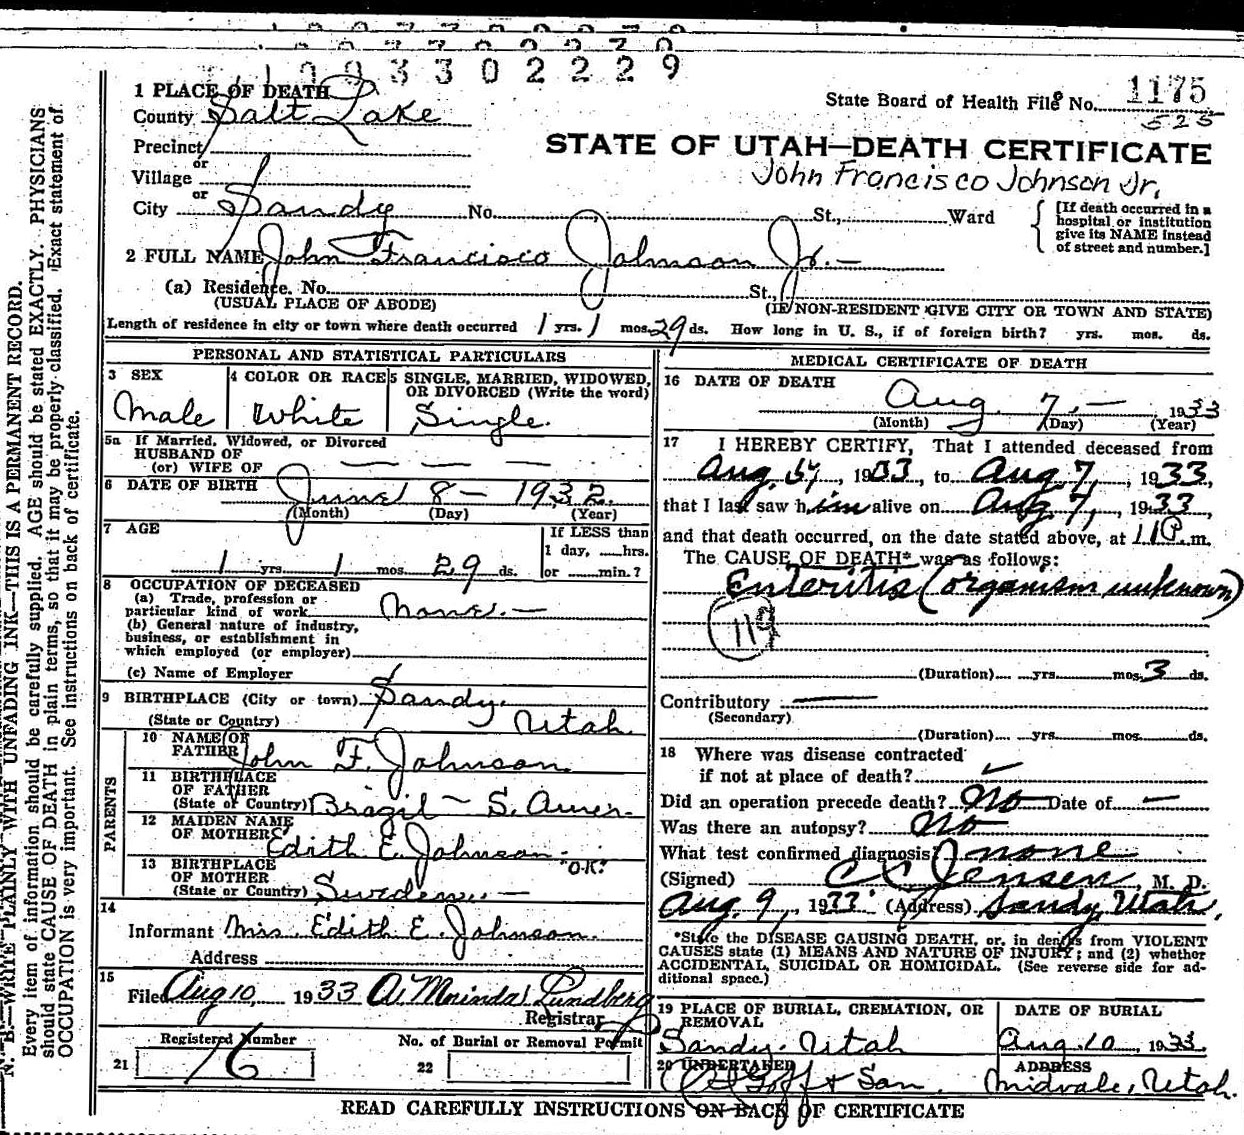 1003302229
1 PLACE OF DEATH
County Salt Lake
State Board of Health File No. 1175
525
Precinct
or
STATE OF UTAH—DEATH CERTIFICATE
Village
or
John Francisco Johnson Jr.
City Sandy No. St., Ward
[If death occurred in a hospital or institution give its NAME instead of street and number.]
2 FULL NAME John Francisco Johnson Jr. —
(a) Residence. No. St.,
(USUAL PLACE OF ABODE) (IF NON-RESIDENT GIVE CITY OR TOWN AND STATE)
Length of residence in city or town where death occurred 1 yrs. 1 mos. 29 ds. How long in U. S., if of foreign birth? yrs. mos. ds.
PERSONAL AND STATISTICAL PARTICULARS
3 SEX
Male
4 COLOR OR RACE
White
5 SINGLE, MARRIED, WIDOWED,
OR DIVORCED (Write the word)
Single.
5a If Married, Widowed, or Divorced
HUSBAND OF
(or) WIFE OF — — — —
6 DATE OF BIRTH June 8 — 1932.
(Month) (Day) (Year)
7 AGE
1 yrs. 1 mos. 29 ds.
If LESS than
1 day, ......hrs.
or ......min.?
8 OCCUPATION OF DECEASED
(a) Trade, profession or
particular kind of work None. —
(b) General nature of industry,
business, or establishment in
which employed (or employer)
(c) Name of Employer
9 BIRTHPLACE (City or town) Sandy.
(State or Country) Utah.
PARENTS
10 NAME OF
FATHER John F. Johnson.
11 BIRTHPLACE
OF FATHER
(State or Country) Brazil — S. Amer.
12 MAIDEN NAME
OF MOTHER Edith E. Johnson.
"O.K."
13 BIRTHPLACE
OF MOTHER
(State or Country) Sweden. —
14
Informant Mrs. Edith E. Johnson.
Address
15
Filed Aug 10, 1933 A. Mminda Lundberg
Registrar
Registered Number
21 76
No. of Burial or Removal Permit
22
MEDICAL CERTIFICATE OF DEATH
16 DATE OF DEATH
Aug. 7, — 1933
(Month) (Day) (Year)
17 I HEREBY CERTIFY, That I attended deceased from
Aug. 1933 to Aug 7, 1933,
that I last saw him alive on Aug 7, 1933,
and that death occurred, on the date stated above, at 11 P. m.
The CAUSE OF DEATH* was as follows:
Enteritis (organism unknown)
119
(Duration) yrs. mos. 3 ds.
Contributory —
(Secondary)
(Duration) yrs. mos. ds.
18 Where was disease contracted
if not at place of death? ✓
Did an operation precede death? No Date of —
Was there an autopsy? No
What test confirmed diagnosis? none
(Signed) C C Jensen, M. D.
Aug. 9, 1933 (Address) Sandy, Utah.
*State the DISEASE CAUSING DEATH, or, in deaths from VIOLENT
CAUSES state (1) MEANS AND NATURE OF INJURY; and (2) whether
ACCIDENTAL, SUICIDAL OR HOMICIDAL. (See reverse side for ad-
ditional space.)
19 PLACE OF BURIAL, CREMATION, OR
REMOVAL
Sandy. Utah
DATE OF BURIAL
Aug. 10, 1933.
20 UNDERTAKER
Goff & Son.
ADDRESS
Midvale, Utah.
READ CAREFULLY INSTRUCTIONS ON BACK OF CERTIFICATE
N. B.—WRITE PLAINLY WITH UNFADING INK—THIS IS A PERMANENT RECORD.
Every item of information should be carefully supplied. AGE should be stated EXACTLY. PHYSICIANS
should state CAUSE OF DEATH in plain terms, so that it may be properly classified. Exact statement of
OCCUPATION is very important. See instructions on back of certificate.